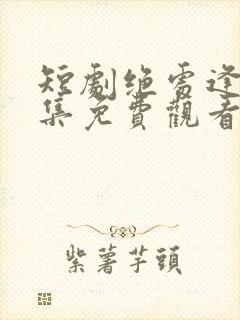 短劇绝雷逢
集免費觀看
紫薯芋頭